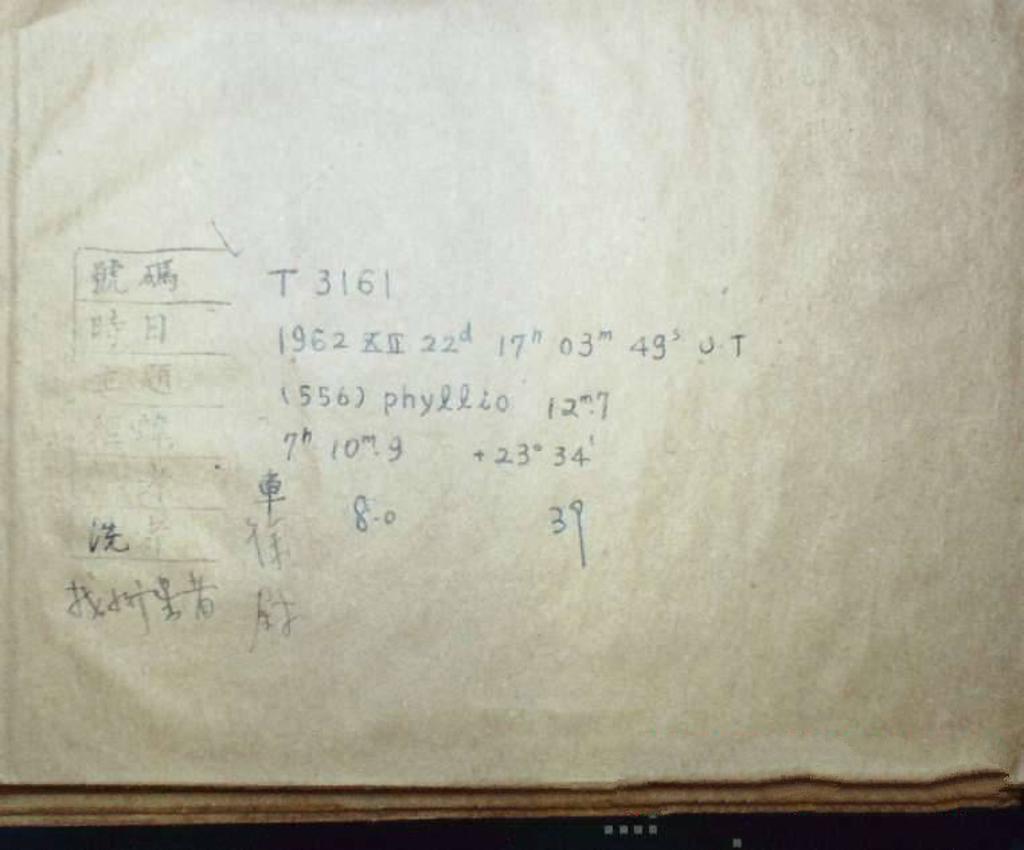 號碼 T 3161
時日 1962 XII 22ᵈ 17ʰ 03ᵐ 49ˢ U.T
題 (556) phyllio 12ᵐ.7
7ʰ 10ᵐ.9 +23° 34'
車 8.0 39
洗 徐